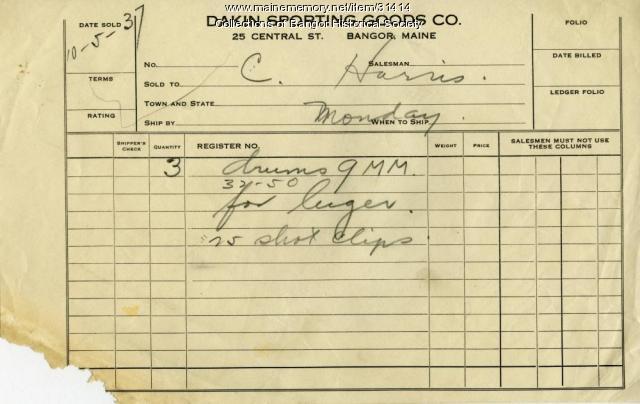 www.mainememory.net/item/31414
DAKIN SPORTING GOODS CO.
Collections of Bangor Historical Society
25 CENTRAL ST. BANGOR, MAINE
DATE SOLD
10-5-37
TERMS
RATING
NO.
SALESMAN
SOLD TO C. Harris.
TOWN AND STATE
SHIP BY
WHEN TO SHIP
Monday.
FOLIO
DATE BILLED
LEDGER FOLIO
SHIPPER'S CHECK QUANTITY REGISTER NO. WEIGHT PRICE SALESMEN MUST NOT USE THESE COLUMNS
3 drums 9 MM.
32-50
for luger.
shot clips.